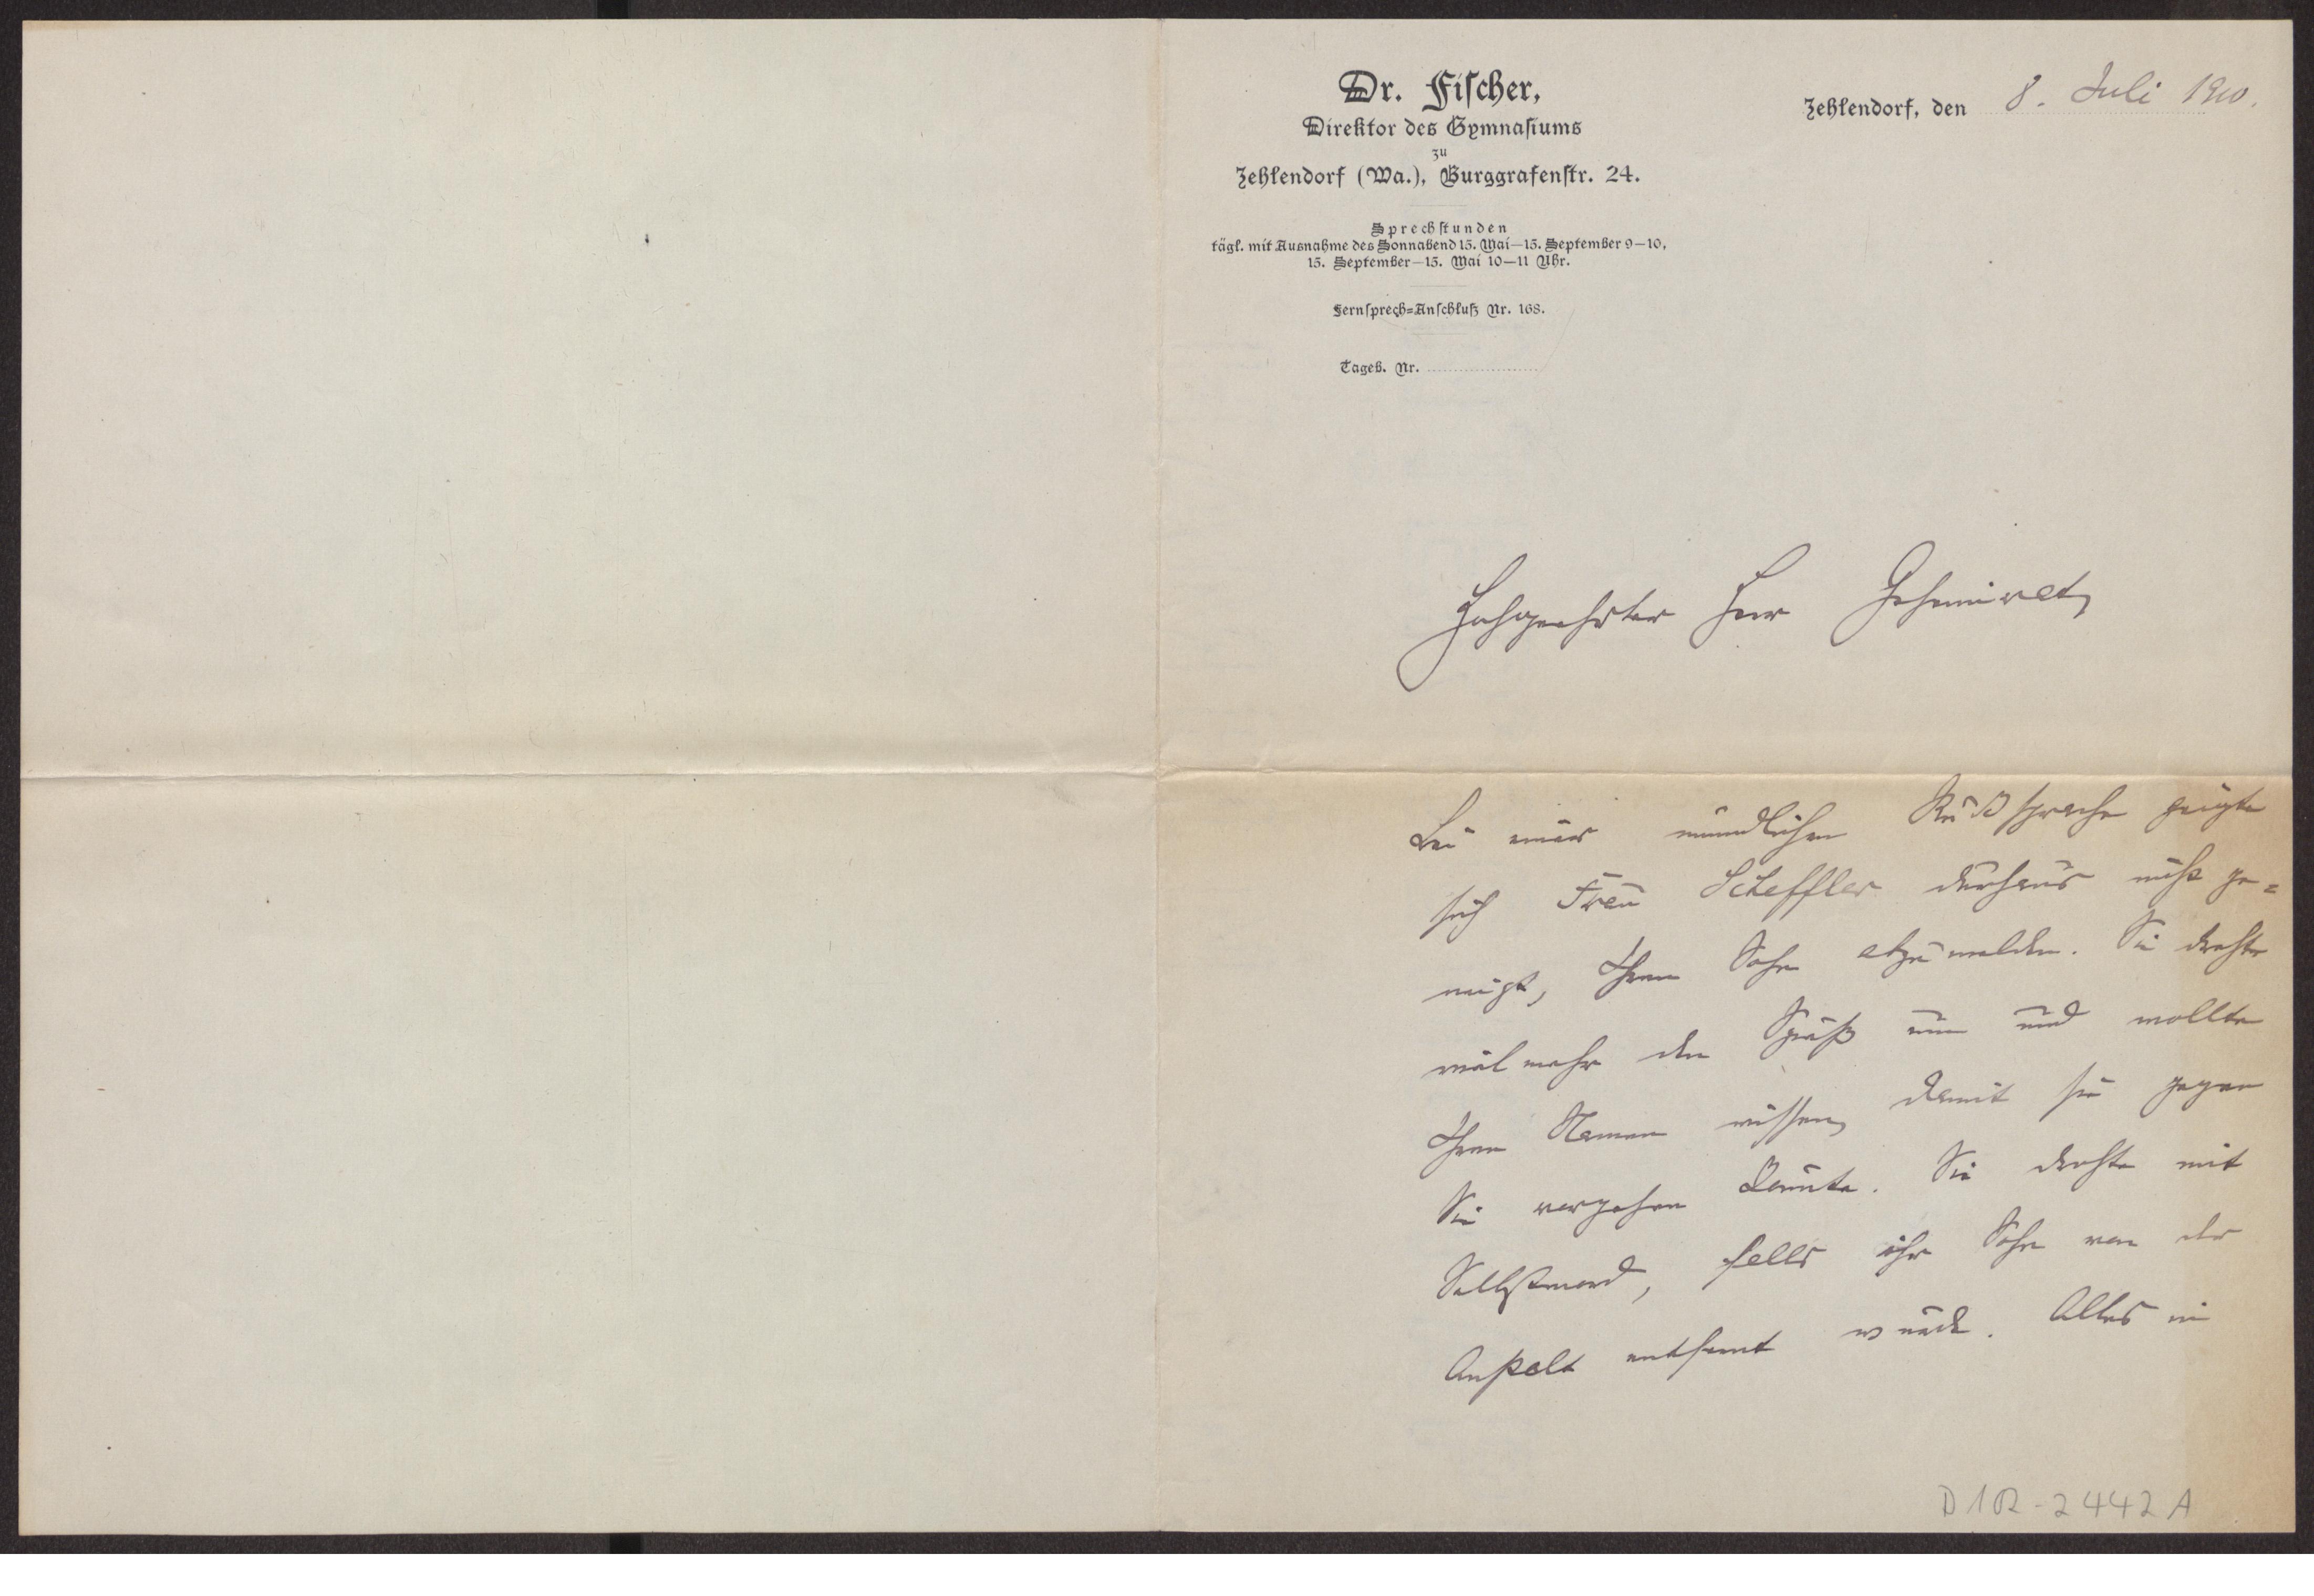 Dr. Fischer,
Direktor des Gymnasiums
zu
Zehlendorf (Wa.), Burggrafenstr. 24.
Sprechstunden
tägl. mit Ausnahme des Sonnabend 15. Mai—15. September 9—10,
15. September—15. Mai 10—11 Uhr.
Fernsprech=Anschluß Nr. 168.
Tageb. Nr.
Zehlendorf, den 8. Juli 1910.
Hochgeehrter Herr Geheimrat,
Bei einer mündlichen Rücksprache zeigte
sich Frau Scheffler durchaus nicht ge=
neigt, Ihren Sohn abzumelden. Sie drehte
vielmehr den Spieß um und wollte
Ihren Namen wissen, damit sie gegen
Sie vorgehen könnte. Sie drohte mit
Selbstmord, falls ihr Sohn von der
Anstalt entfernt würde. Alles in
D 1R-2442 A